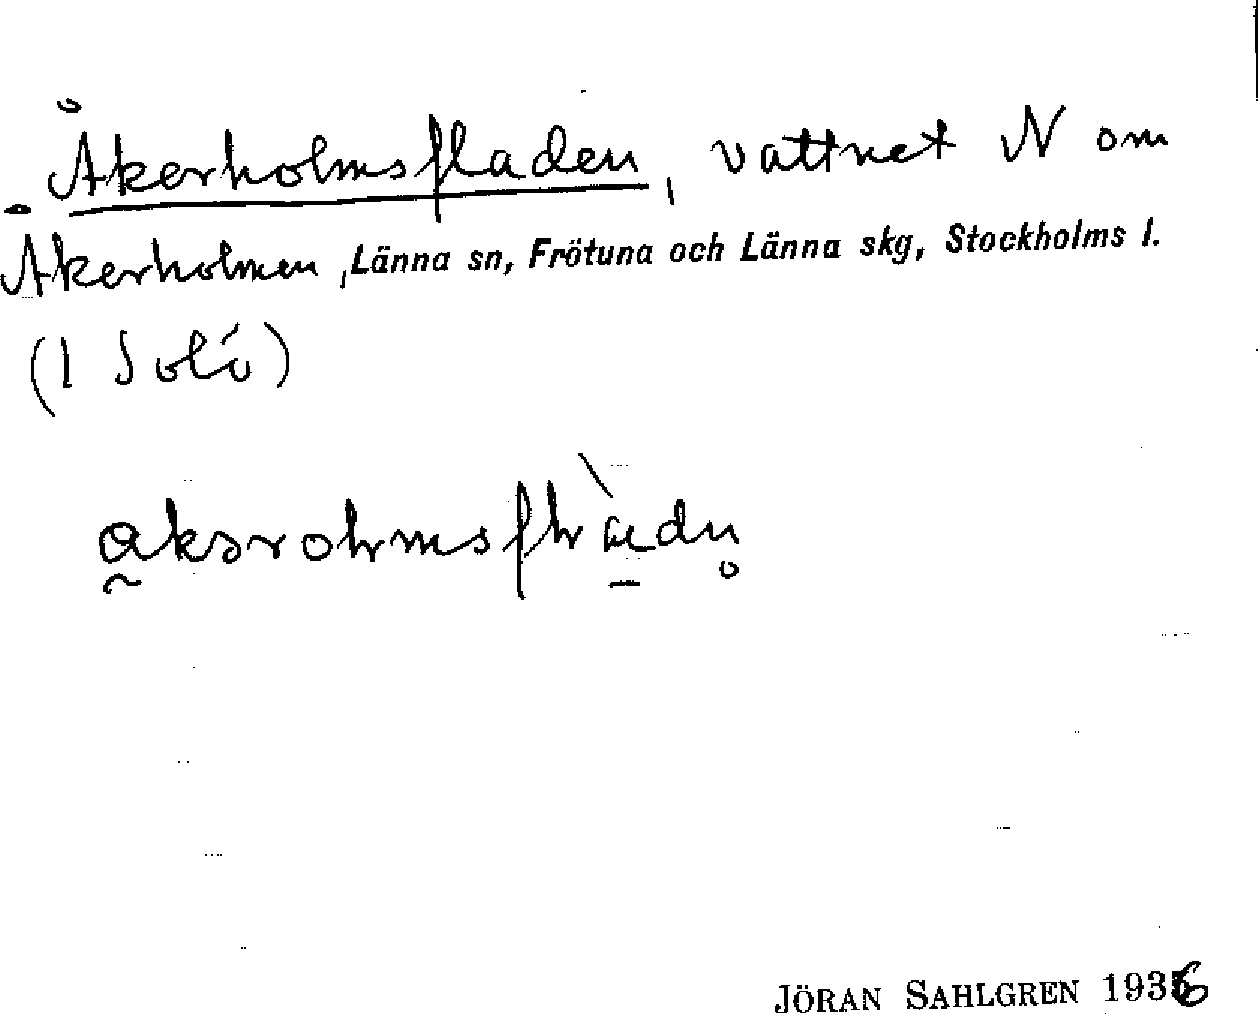 Åkerholmsfladen, vattnet N om
Åkerholmen, Länna sn, Frötuna och Länna skg, Stockholms l.
(I Solö)
JÖRAN SAHLGREN 1936